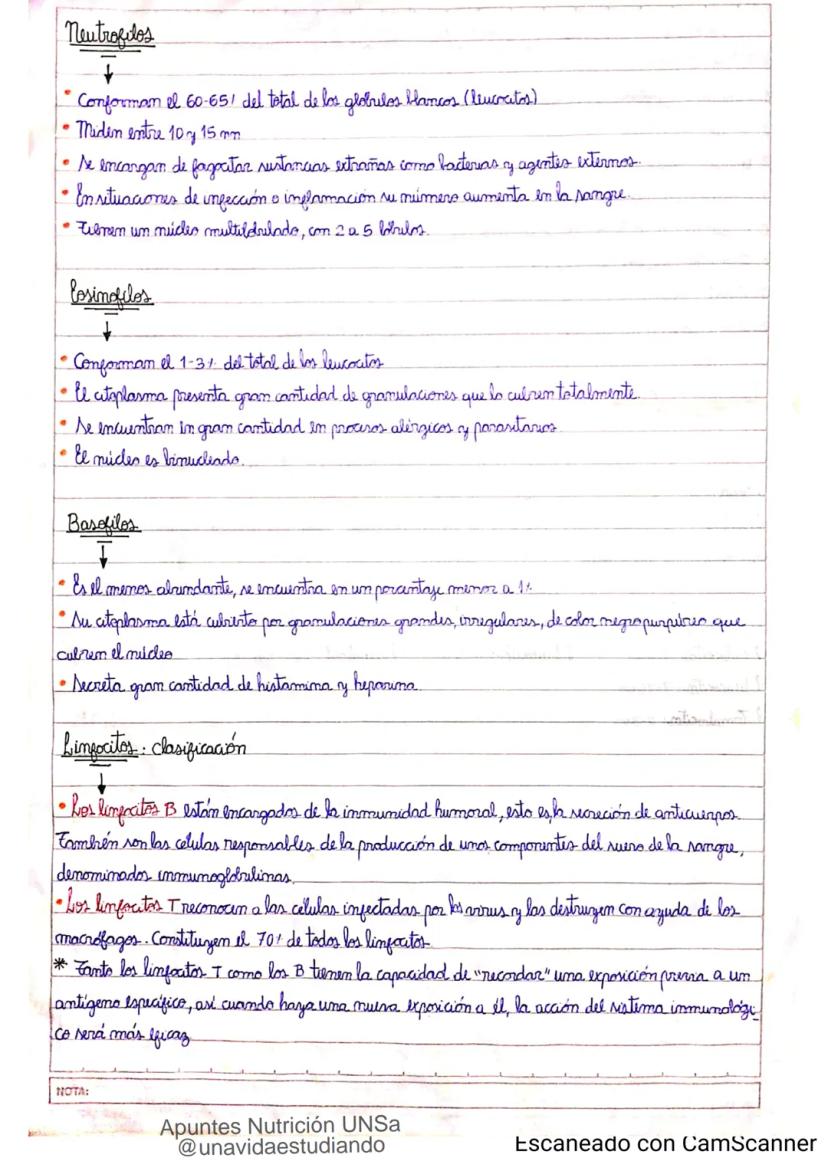 Neutrofilos
• Conforman el 60-65% del total de los glóbulos blancos (leucocitos)
• Miden entre 10 y 15 nm
• Se encargan de fagocitar sustancias extrañas como bacterias y agentes externos.
• En situaciones de infección o inflamación su número aumenta en la sangre.
• Tienen un núcleo multilobulado, con 2 a 5 lóbulos.
Eosinofilos
• Conforman el 1-3% del total de los leucocitos
• El citoplasma presenta gran cantidad de granulaciones que lo cubren totalmente.
• Se encuentran en gran cantidad en procesos alérgicos y parasitarios.
• El núcleo es binucleado.
Basofilos
• Es el menos abundante, se encuentra en un porcentaje menor a 1%
• Su citoplasma está cubierto por granulaciones grandes, irregulares, de color negro purpúreo que
cubren el núcleo
• Secreta gran cantidad de histamina y heparina.
Linfocitos: clasificación
• Los linfocitos B están encargados de la inmunidad humoral, esto es, la secreción de anticuerpos.
También son las células responsables de la producción de unos componentes del suero de la sangre,
denominados inmunoglobulinas.
• Los linfocitos T reconocen a las células infectadas por los virus y las destruyen con ayuda de los
macrófagos. Constituyen el 70% de todos los linfocitos.
* Tanto los linfocitos T como los B tienen la capacidad de "recordar" una exposición previa a un
antígeno específico, así cuando haya una nueva exposición a él, la acción del sistema inmunológi-
co será más eficaz
NOTA:
Apuntes Nutrición UNSa
@unavidaestudiando
Escaneado con CamScanner